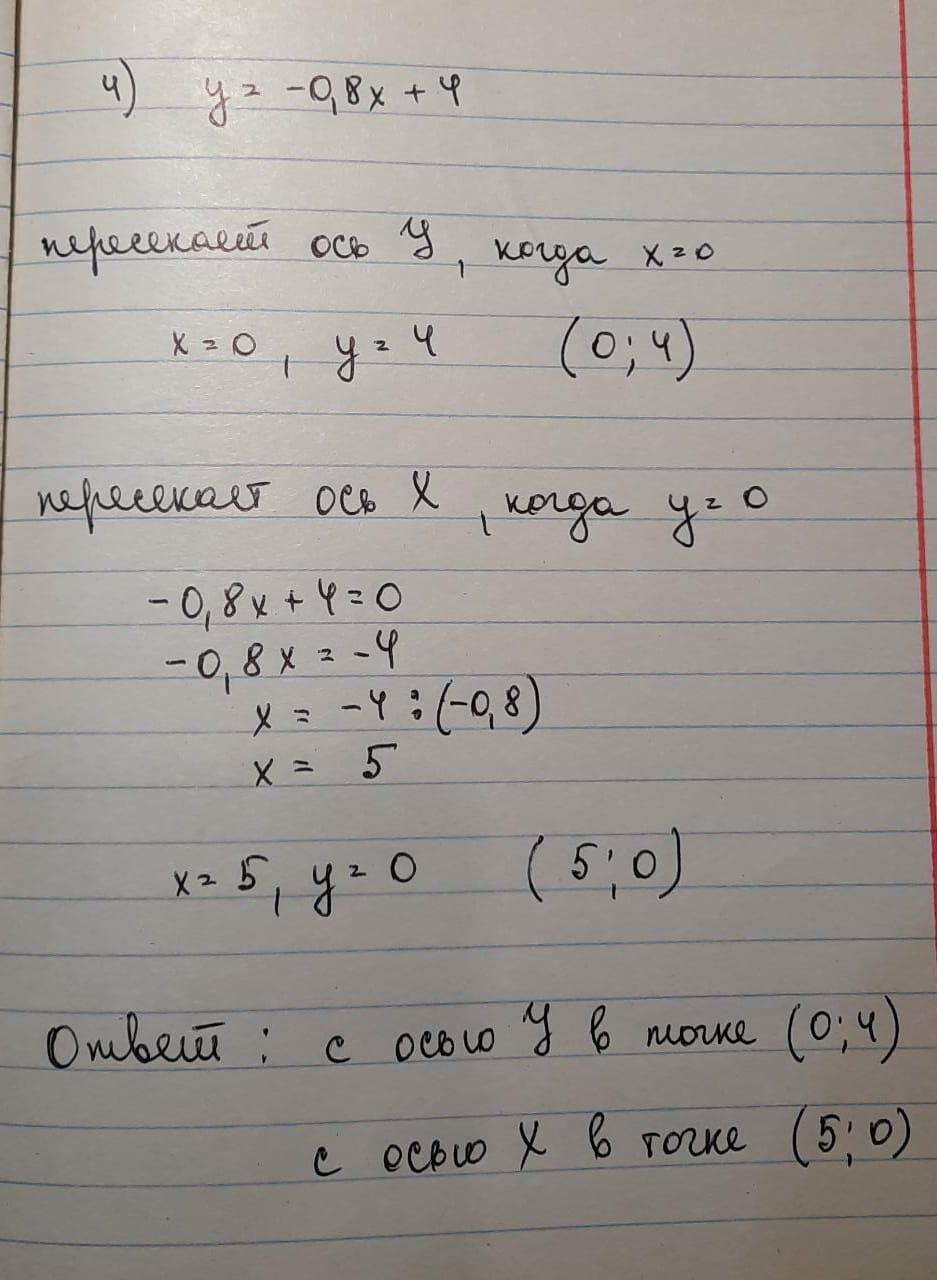 4) y = -0,8x + 4
пересекает ось У, когда x=0
x = 0, y = 4 (0; 4)
пересекает ось X, когда y = 0
-0,8x + 4 = 0
-0,8x = -4
x = -4 : (-0,8)
x = 5
x = 5, y = 0 (5; 0)
Ответ: с осью У в точке (0; 4)
с осью X в точке (5; 0)